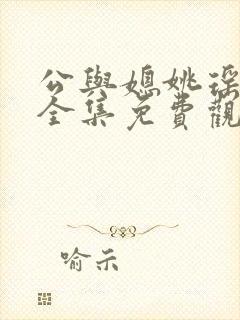 公與媳姚瑤
全集免費觀
喻示